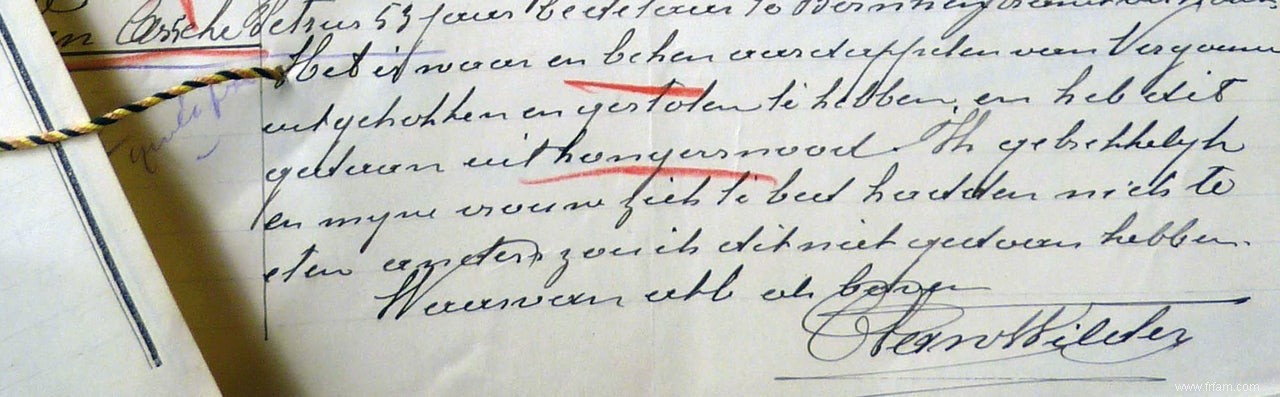 Cassche Petrus 53 jaar bedelaar te
Het is waar en beken aardappelen van Vergauwen
uitgetrokken en gestolen te hebben, en heb dit
gedaan uit hongersnood. Ik gebrekkelijk
en myne vrouw ziek te bed hadden niets te
eten anders zou ik dit niet gedaan hebben.
Waarvan akt als boven
www.frfam.com